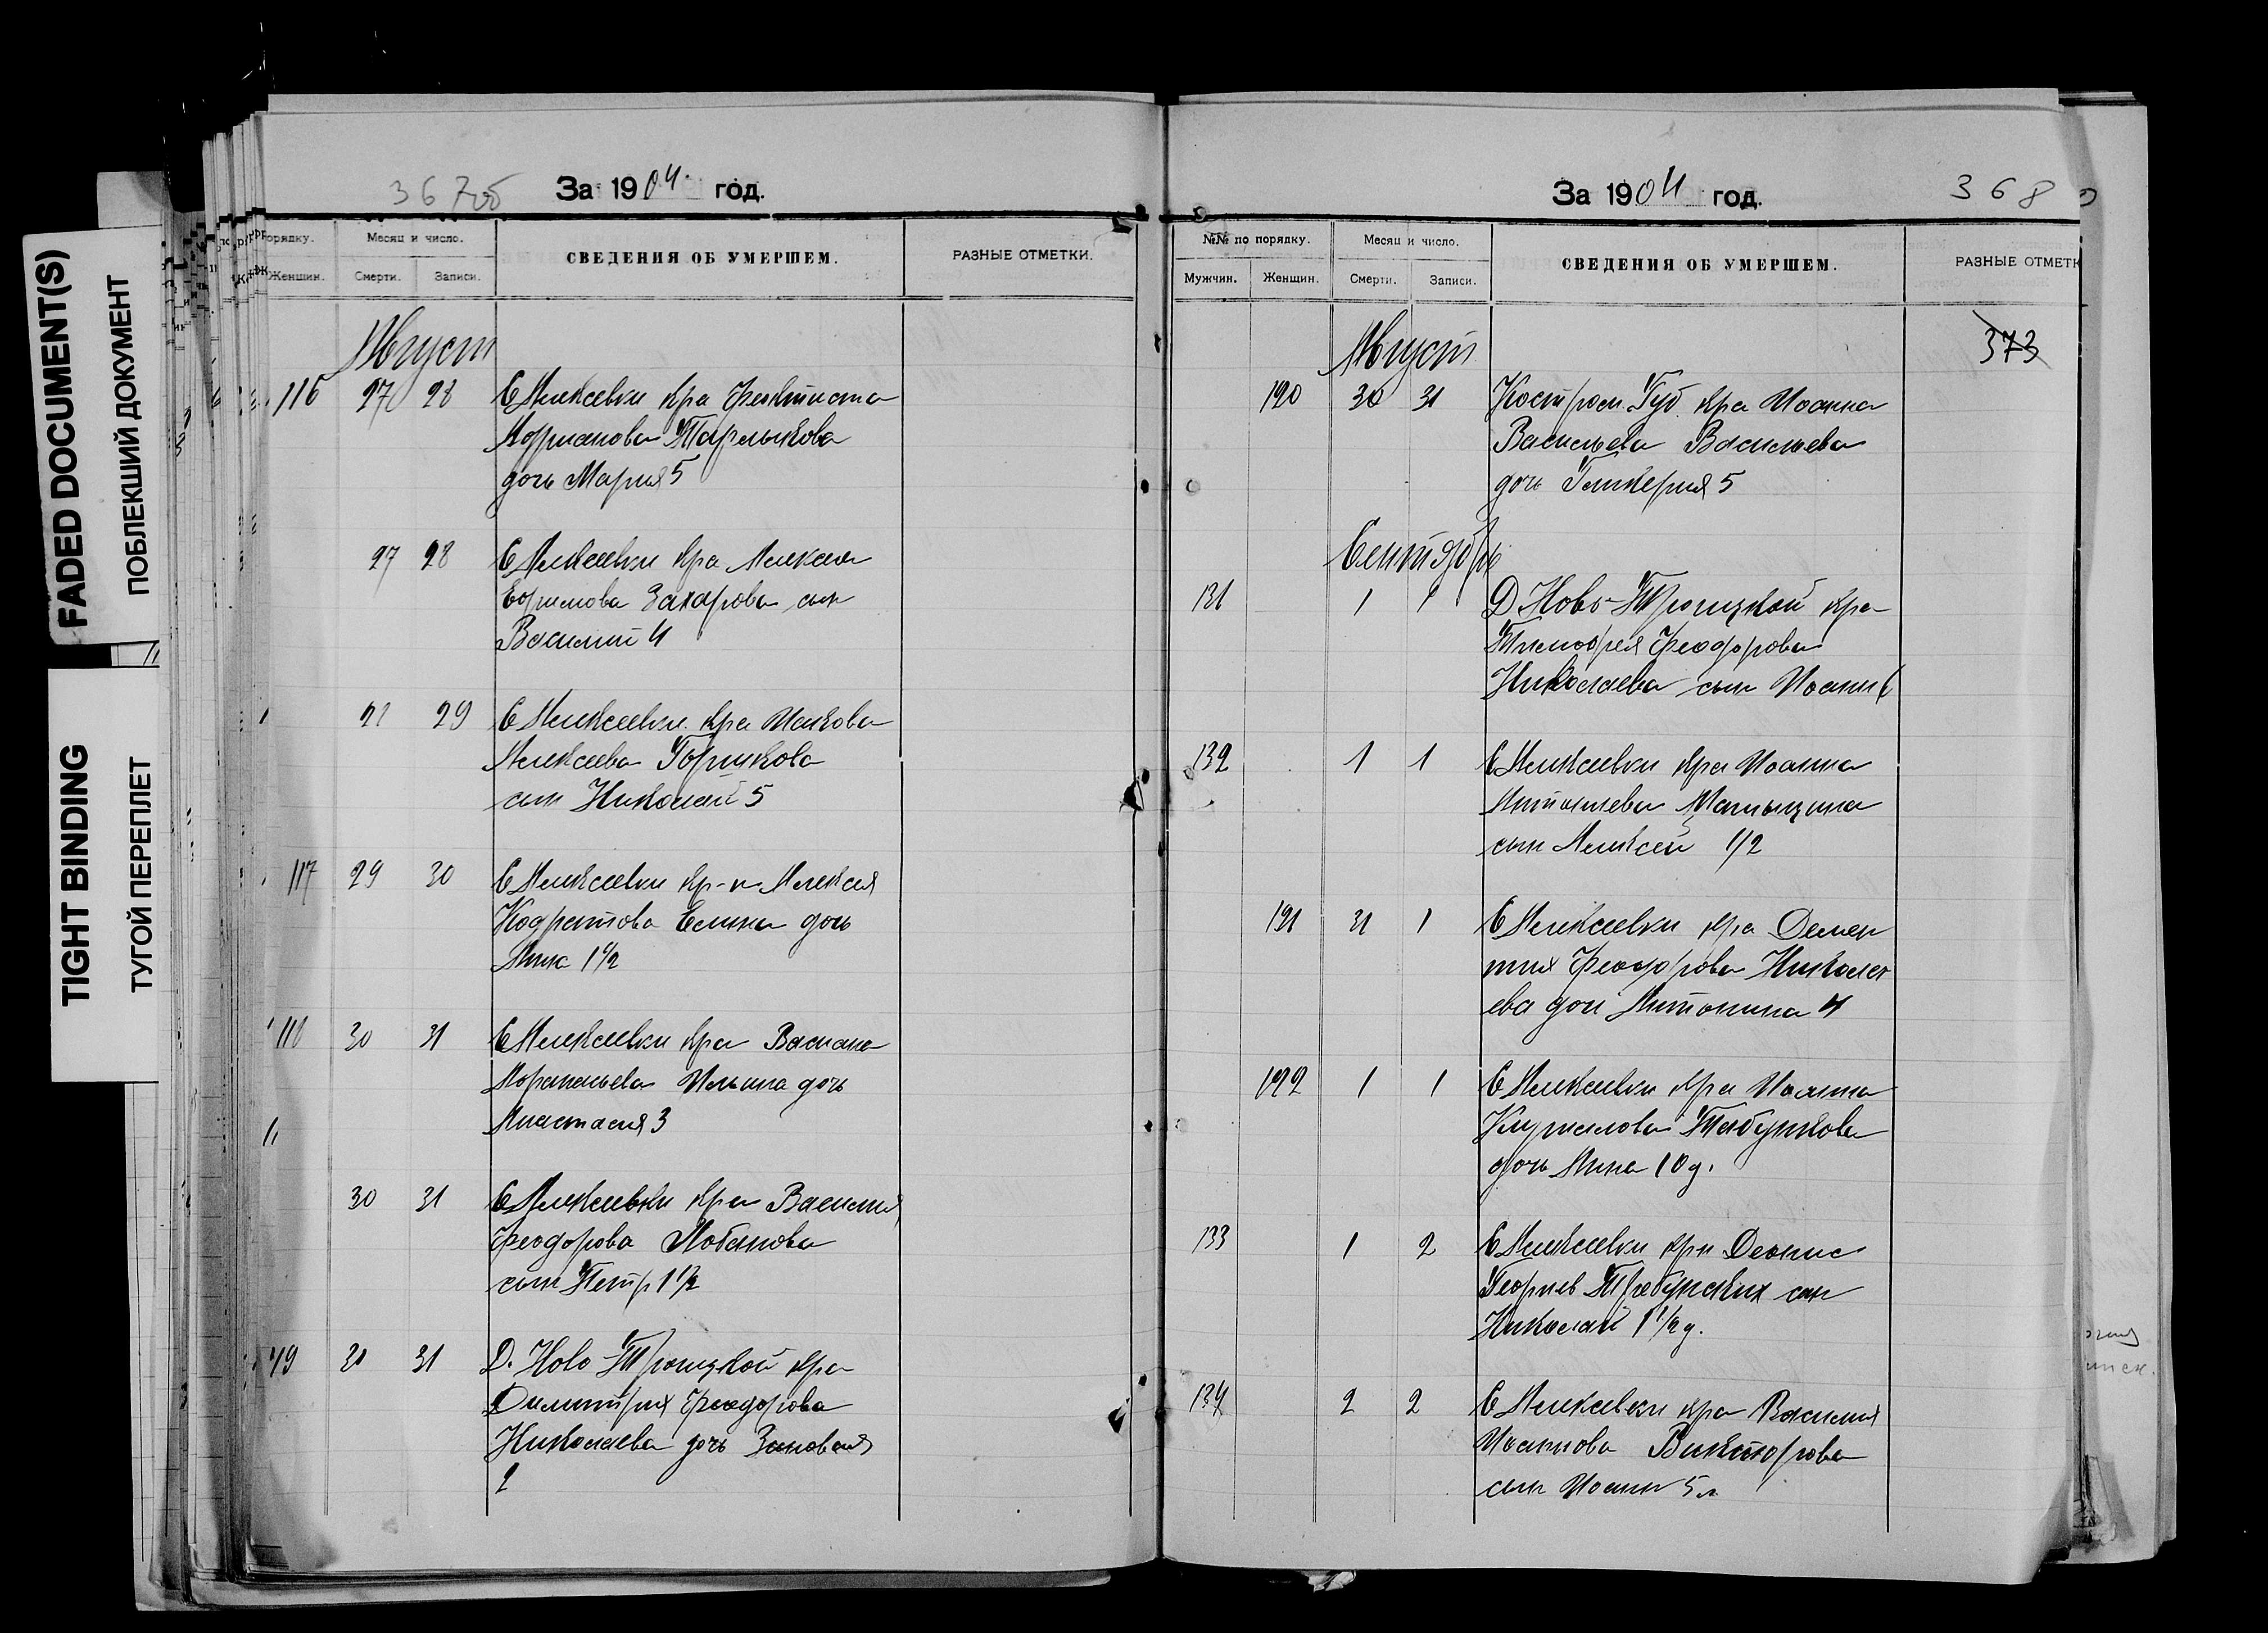 FADED DOCUMENT(S)
ПОБЛЕКШИЙ ДОКУМЕНТ
TIGHT BINDING
ТУГОЙ ПЕРЕПЛЕТ
367об
За 1904 год.
орядку.
Женщин.
Месяц и число.
Смерти.
Записи.
СВЕДЕНИЯ ОБ УМЕРШЕМ.
РАЗНЫЕ ОТМЕТКИ.
Август
116 27 28 С Алексеевки кра Феоктиста
Адрианова Тарлыкова
дочь Мария 5
27 28 С Алексеевки кра Алексея
Ефимова Захарова сын
Василий 4
29 С Алексеевки кра Иакова
Алексеева Горшкова
сын Николай 5
117 29 30 С Алексеевки кр-н Алексея
Кодратова Елина дочь
Анна 1 1/2
118 30 31 С Алексеевки кра
Афанасьева Ильина дочь
Анастасия 3
30 31 С Алексеевки кра Василия
Феодорова Лобанова
сын Петр 1 1/2
31 31 Д. Ново-Троицкой кра
Димитрия Феодорова
Николаева дочь Зиновия
2
За 1904 год.
368
№№ по порядку.
Мужчин.
Женщин.
Месяц и число.
Смерти.
Записи.
СВЕДЕНИЯ ОБ УМЕРШЕМ.
РАЗНЫЕ ОТМЕТК
373
Август
120 30 31 Костром. Губ. кра Иоанна
Васильева Васильева
дочь Гликерия 5
Сентябрь
131 1 1 Д. Ново-Троицкой кра
Тимофея Феодорова
Николаева сын Иоанн
132 1 1 С Алексеевки кра Иоанна
Мамыкина
сын Алексей 1/2
121 31 1 С Алексеевки кра Демен
тия Феодорова Никола
ева доч Антонина 4
122 1 1 С Алексеевки кра Иоанна
Кириллова Табункова
дочь Анна 10 д.
133 1 2 С Алексеевки крн Деонис
Георгиев Требунских сын
Николай 1 1/2 г.
134 2 2 С Алексеевки кра Василия
Иоаннова Викторова
сын Иоанн 5 л